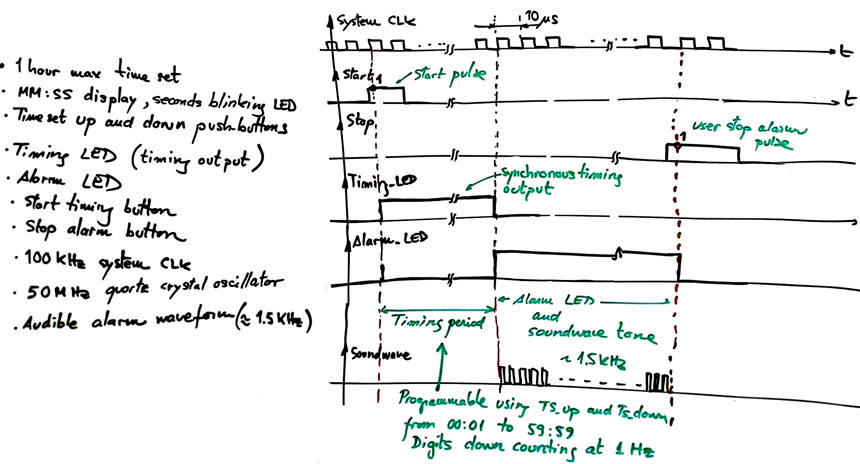 • 1 hour max time set
• MM:SS display, seconds blinking LED
• Time set up and down push-buttons
• Timing LED (timing output)
• Alarm LED
• Start timing button
• Stop alarm button
• 100 KHz system CLK
• 50 MHz quartz crystal oscillator
• Audible alarm waveform (≈ 1.5 KHz)
System CLK
10 µs
t
Start
1
Start pulse
t
Stop
1
user stop alarm
pulse
Timing_LED
Synchronous timing
output
Alarm_LED
Timing period
Alarm LED
and
soundwave tone
~ 1.5 kHz
Soundwave
Programmable using TS_up and TS_down
from 00:01 to 59:59
Digits down counting at 1 Hz